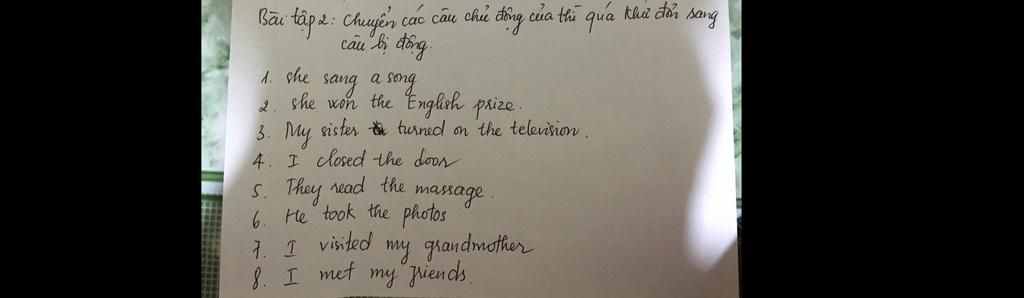 Bài tập 2: Chuyển các câu chủ động của thì quá khứ đơn sang
câu bị động.
1. She sang a song
2. She won the English prize.
3. My sister turned on the television.
4. I closed the door
5. They read the massage.
6. He took the photos
7. I visited my grandmother
8. I met my friends.